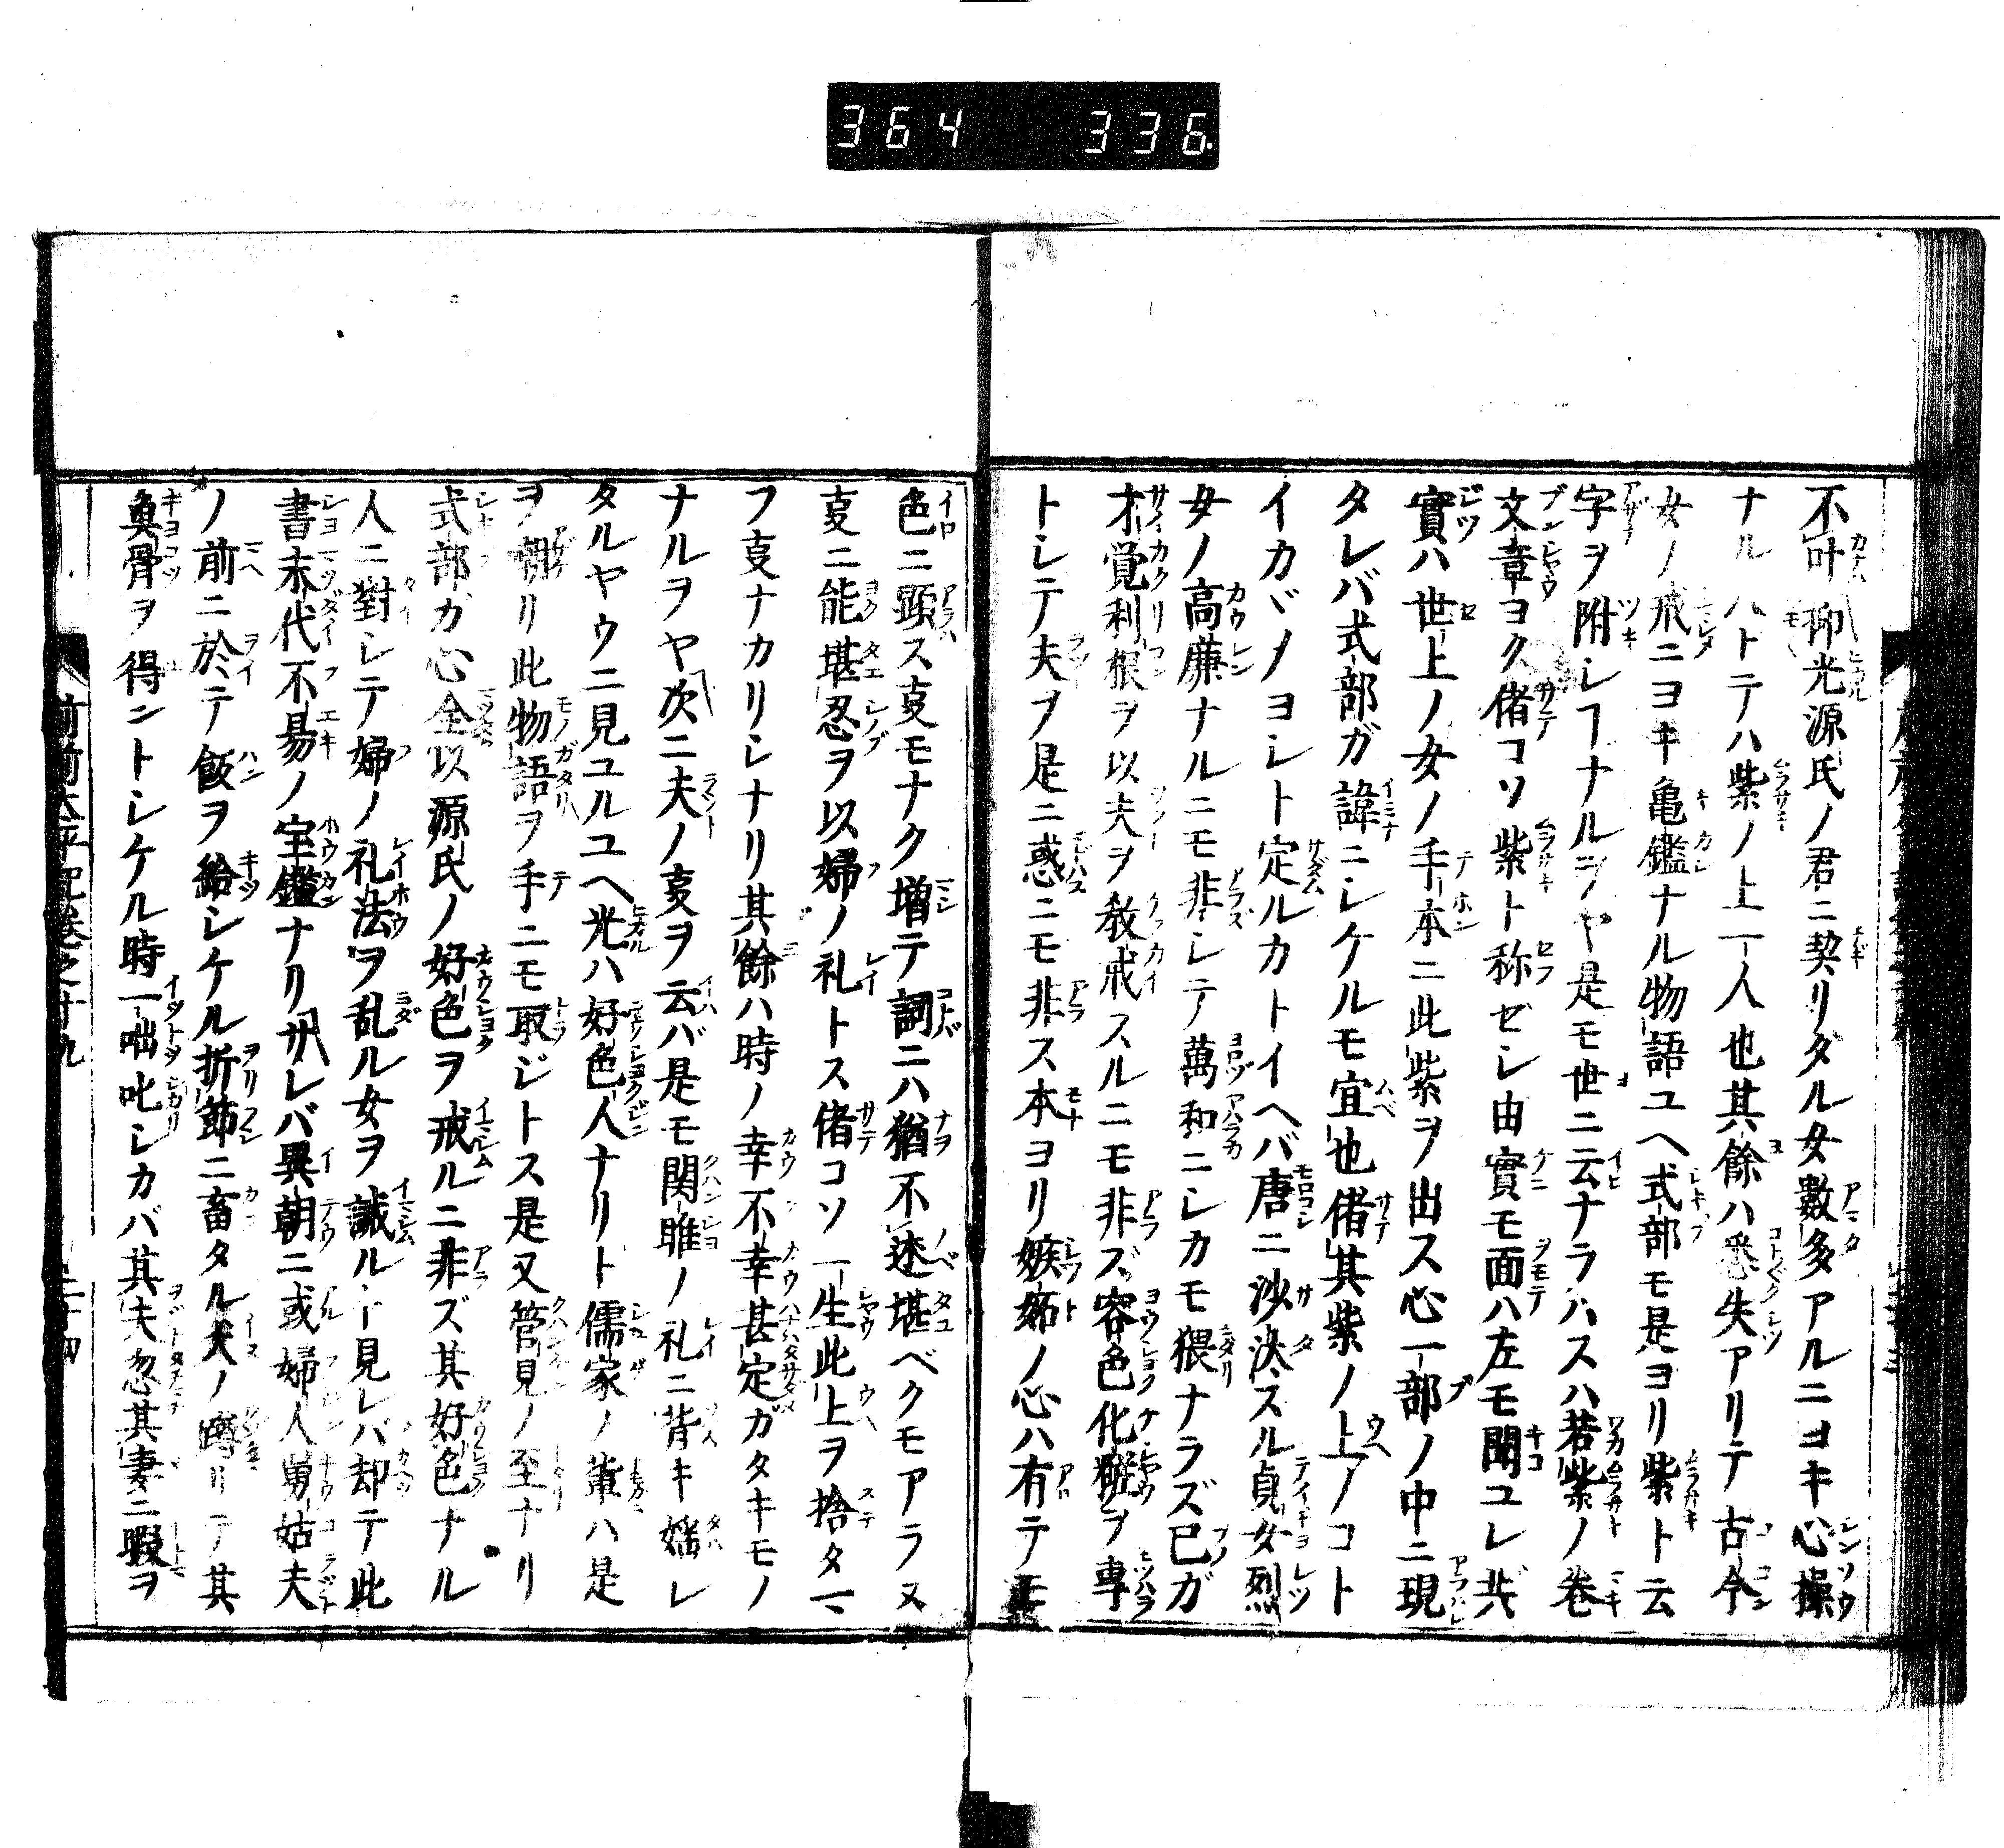 364 336
不叶仰光源氏ノ君ニ契リタル女數多アルニヨキ心操
ナルハトテハ紫ノ上一人也其餘ハ悉失アリテ古今
女ノ戒ニヨキ亀鑑ナル物語ユヘ式部モ是ヨリ紫ト云
字ヲ附シヿナルヲヤ是モ世ニ云ナラハスハ若紫ノ巻
文章ヨク偖コソ紫ト称ゼシ由實モ面ハ左モ聞ユレ𪜈
實ハ世上ノ女ノ手本ニ此紫ヲ出ス心一部ノ中ニ現
タレバ式部ガ諱ニシケルモ宜也偖其紫ノ上ノコト
イカヾノヨシト定ルカトイヘバ唐ニ沙汰スル貞女烈
女ノ高廉ナルニモ非シテ萬和ニシカモ猥ナラズ己ガ
才覚利根ヲ以夫ヲ教戒スルニモ非ズ容色化粧ヲ專
トシテ夫ヲ是ニ惑ニモ非ス本ヨリ嫉妬ノ心ハ有テモ
色ニ顕ス叓モナク増テ詞ニハ猶不述堪ベクモアラヌ
叓ニ能堪忍ヲ以婦ノ礼トス偖コソ一生此上ヲ捨タマ
フ叓ナカリシナリ其餘ハ時ノ幸不幸甚定ガタキモノ
ナルヲヤ次ニ夫ノ叓ヲ云バ是モ関雎ノ礼ニ背キ婬レ
タルヤウニ見ユルユヘ光ハ好色人ナリト儒家ノ輩ハ是
ヲ嘲リ此物語ヲ手ニモ取ジトス是又管見ノ至ナリ
式部カ心全以源氏ノ好色ヲ戒ルニ非ズ其好色ナル
人ニ對シテ婦ノ礼法ヲ乱ル女ヲ誡ルト見レバ却テ此
書末代不易ノ宝鑑ナリサレバ異朝ニ或婦人舅姑夫
ノ前ニ於テ飯ヲ給シケル折節ニ畜タル犬ノ リテ其
魚骨ヲ得ントシケル時一咄叱シカバ其夫忽其妻ニ暇ヲ
前前太平記巻之十九
二十四